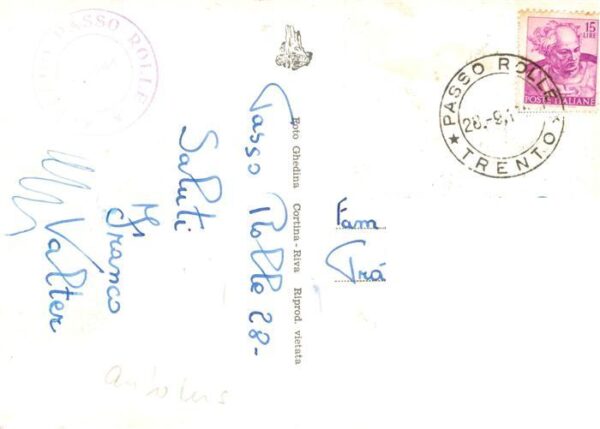 PASSO ROLLE
Passo Rolle 28-
Saluti
Franco
Valter
Foto Ghedina Cortina - Riva Riprod. vietata
15
LIRE
POSTE ITALIANE
★ PASSO ROLLE ★
TRENTO
28.-9.1
Fam
Trá